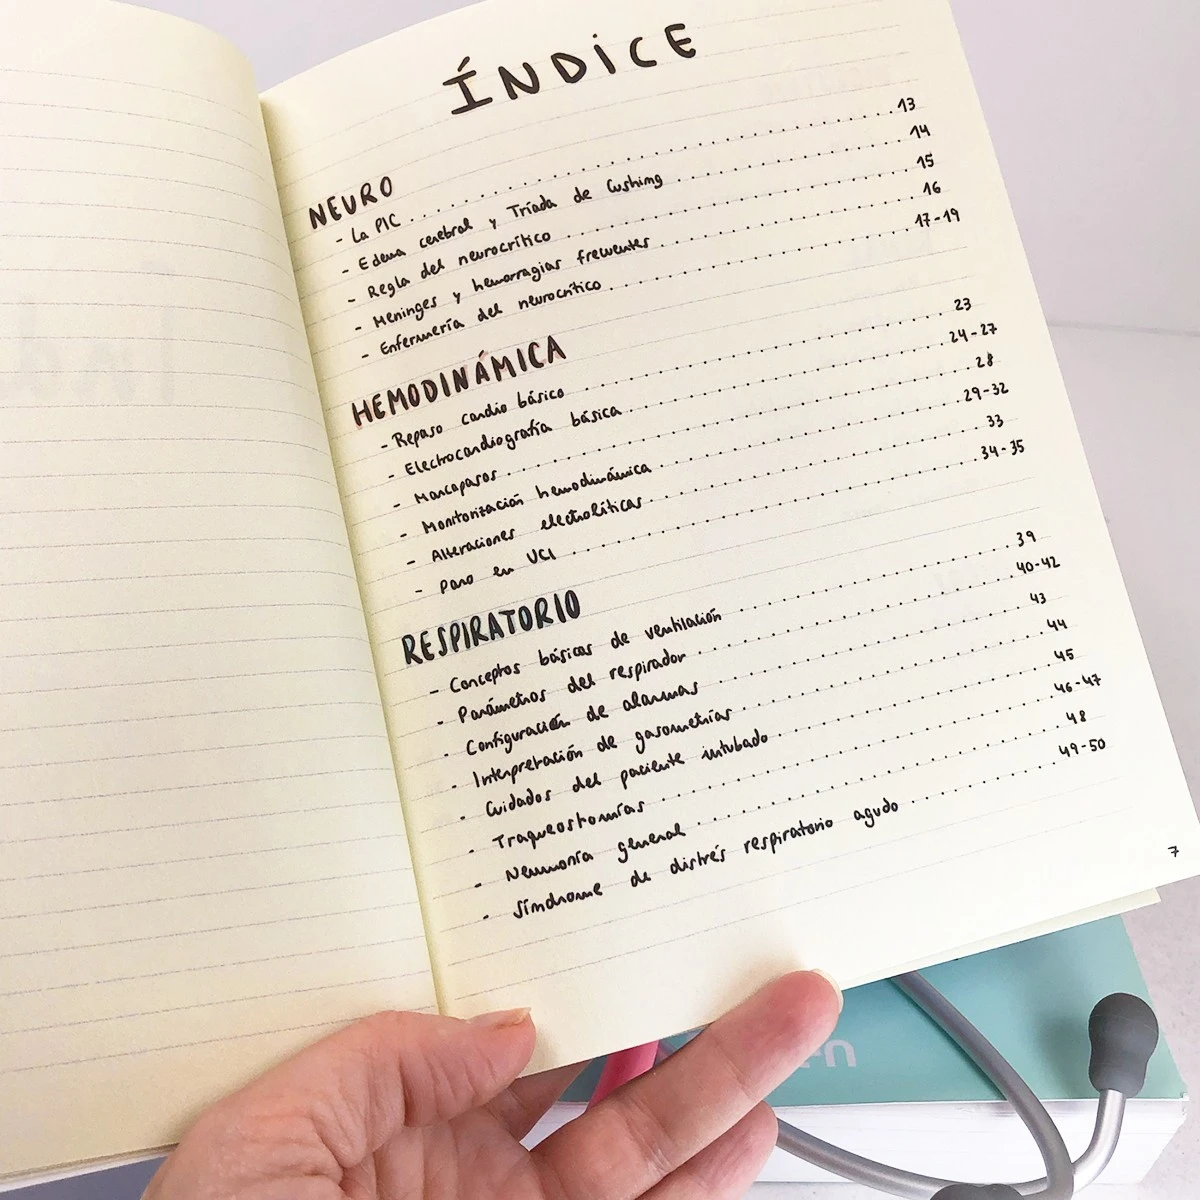 ÍNDICE
NEURO
- La PIC .......... 13
- Edema cerebral y Tríada de Cushing .......... 14
- Regla del neurocrítico .......... 15
- Meninges y hemorragias frecuentes .......... 16
- Enfermería del neurocrítico .......... 17-19
HEMODINÁMICA
- Repaso cardio básico .......... 23
- Electrocardiografía básica .......... 24-27
- Marcapasos .......... 28
- Monitorización hemodinámica .......... 29-32
- Alteraciones electrolíticas .......... 33
- Paro en UCI .......... 34-35
RESPIRATORIO
- Conceptos básicos de ventilación .......... 39
- Parámetros del respirador .......... 40-42
- Configuración de alarmas .......... 43
- Interpretación de gasometrías .......... 44
- Cuidados del paciente intubado .......... 45
- Traqueostomías .......... 46-47
- Neumonía general .......... 48
- Síndrome de distrés respiratorio agudo .......... 49-50
7